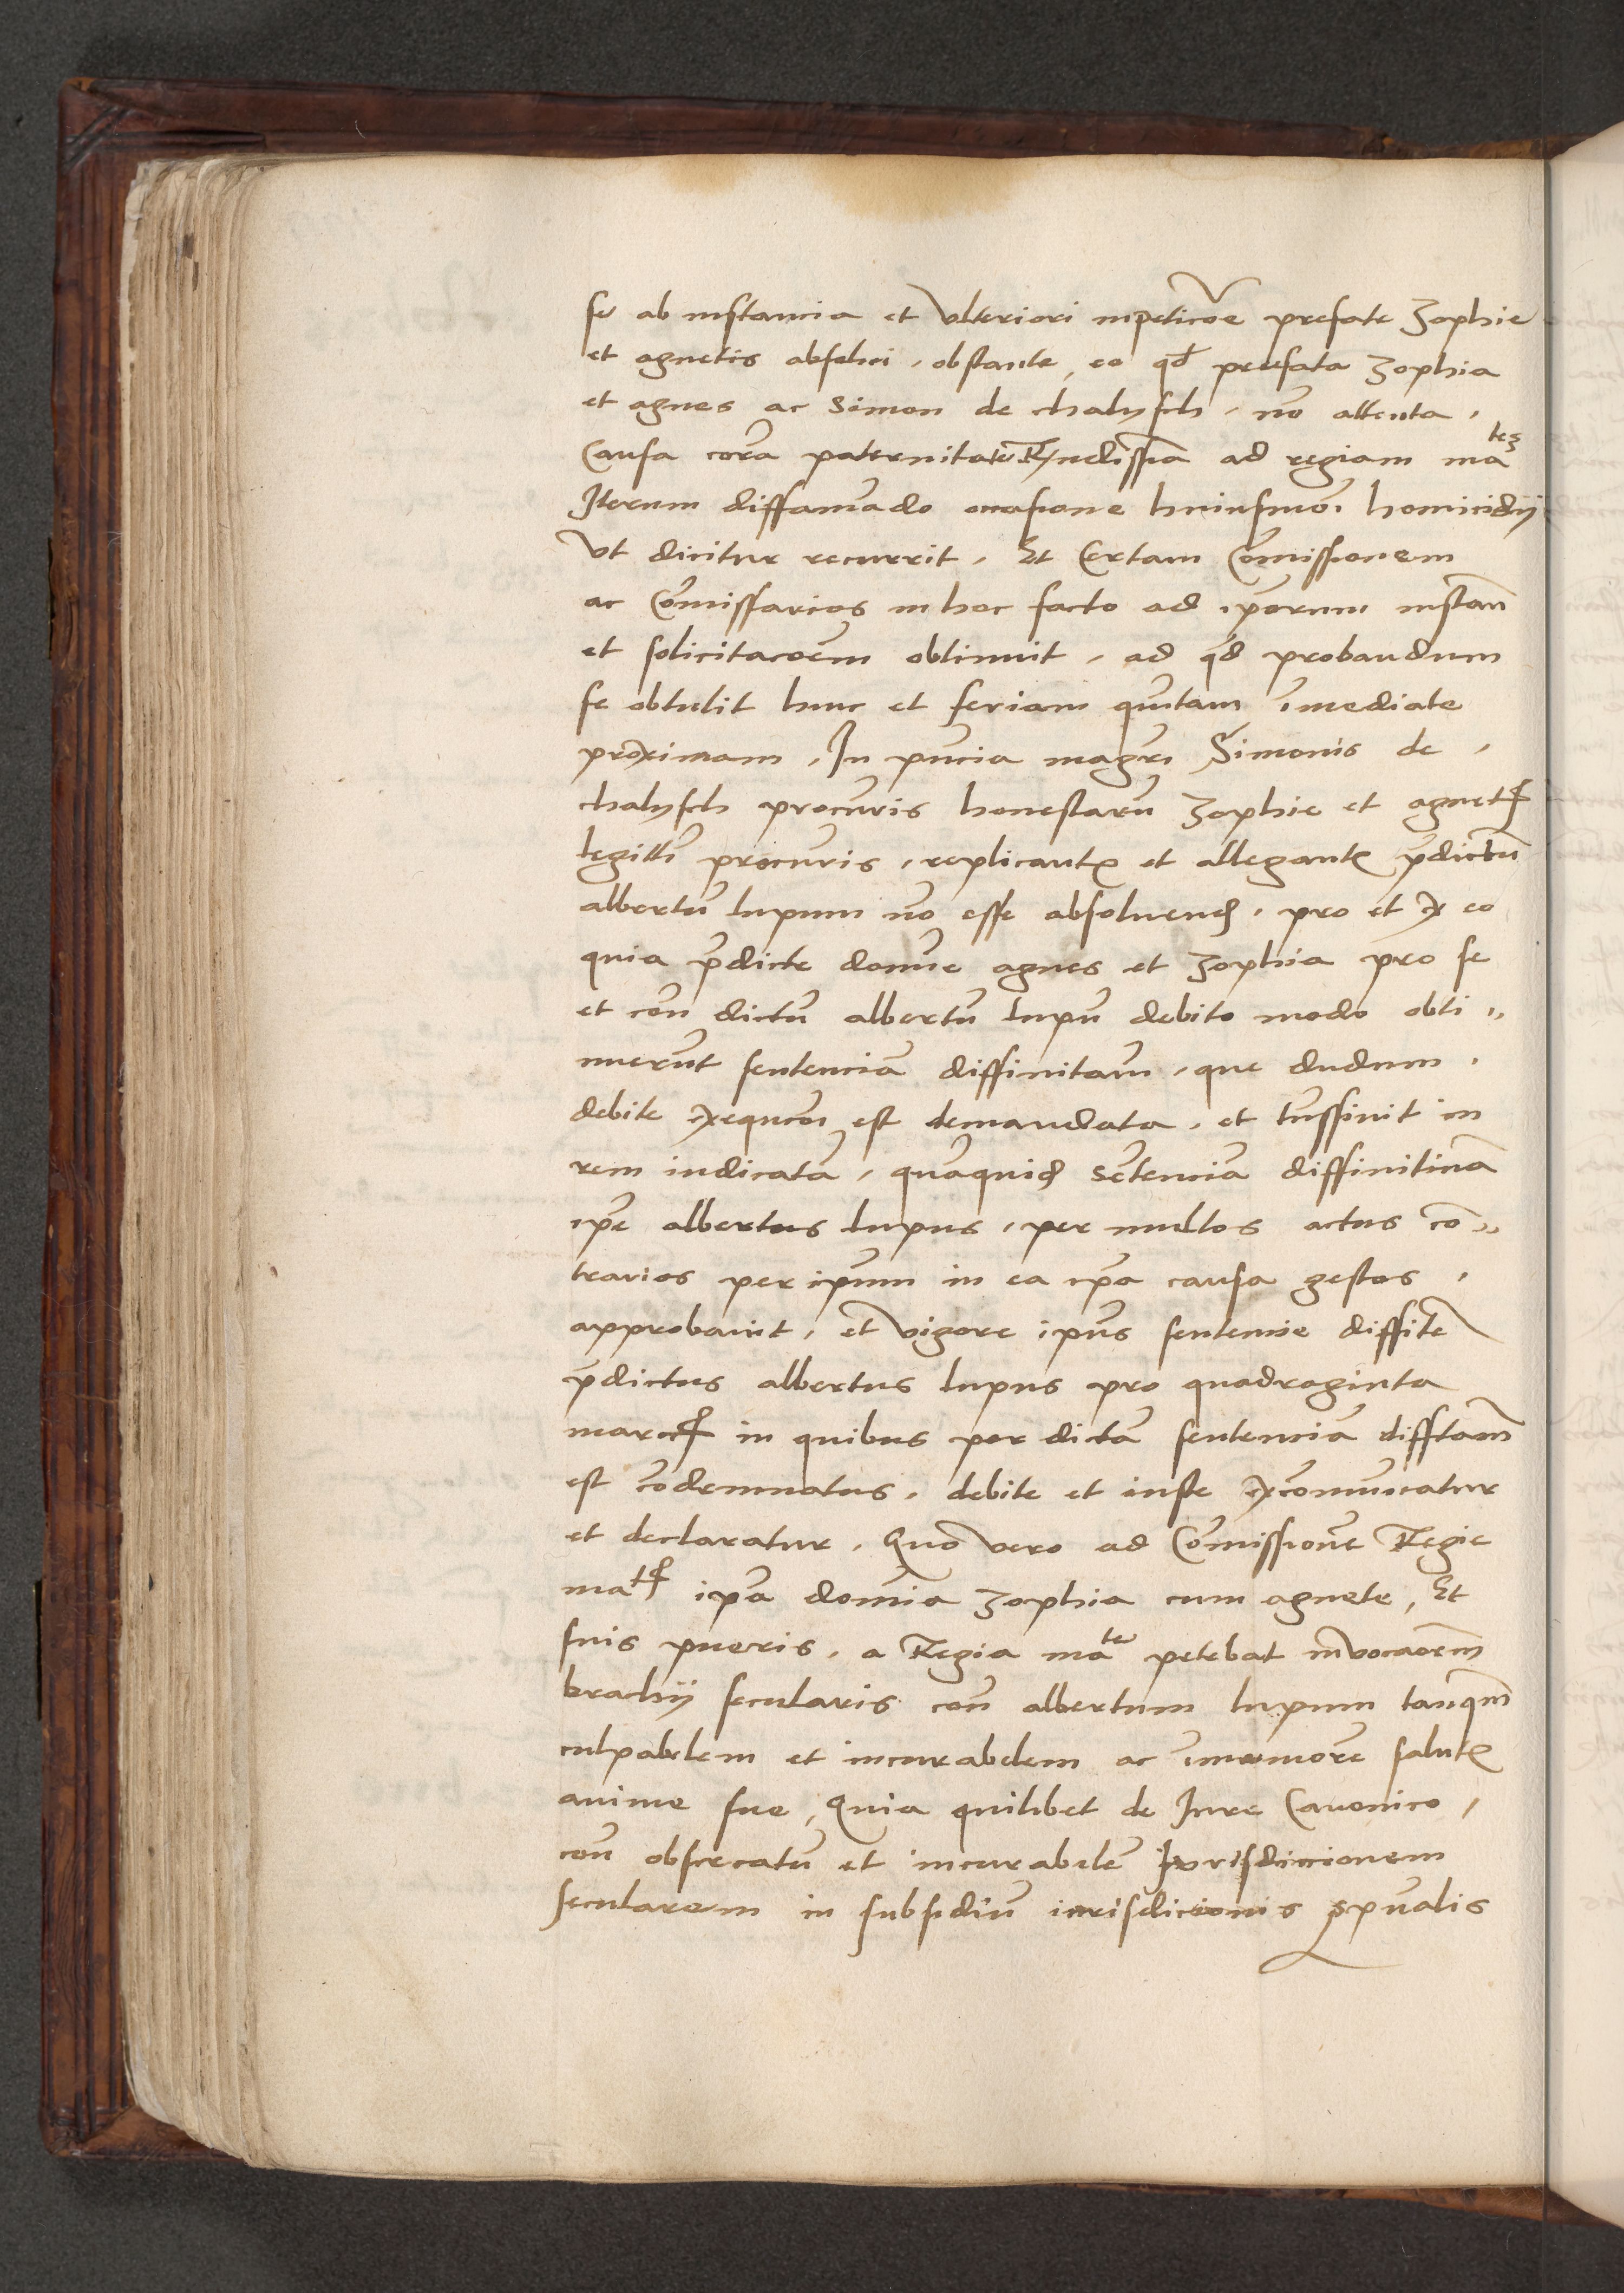 se ab instancia et ulteriori inpeticõe prefate Zophie
et agnetis absolui, obstante, eo qđ prefata Zophia
et agnes ac Simon de chalysch, nõ attenta,
Causa corã paternitate R̃ndissima ad regiam ma^tẽ
Iterum diffamãdo occasione huiusmõi homicidij
vt dicitur recurrit, Et Certam Cõmissionem
ac Cõmissarios in hoc facto ad ip̃orum instanc̃
et solicitacõem obtinuit, ad qđ probandum
se obtulit hinc et feriam quĩtam ĩmediate
proximam, In p̃ncia mag̃ri Simonis de,
chalysch procũris honestarũ Zophie et agnet̃
legitti procũris, replicant̃ et allegant̃ p̃dictũ
albertũ lupum nõ esse absoluend̃, pro et ex eo
quia p̃dicte domĩe agnes et Zophia pro se
et con̄ dictũ albertũ lupũ debito modo obti„
nuerũt sentenciã diffinitiam̃, que dudum,
debite exequcõi est demandata, et trñsiuit in
rem iudicatã, quãquid̃ sẽtenciã diffinitiuã
ip̃e albertus lupus, per multos actus cõ„
trarios per ip̃um in ea ip̃a causa gestos,
approbauit, et vigore ip̃ius sentencie diffĩte
p̃dictus albertus lupus pro quadraginta
marc̃ in quibus per dictã sentenciã difftam̃
est cõdemnatus, debite et iuste excomũicatur
et declaratur, Quo vero ad Cõmissionẽ Regie
ma^t̃ ip̃a domĩa Zophia cum agnete, Et
suis pueris, a Regia ma^te petebat ĩnvocacõem
brachij secularis con̄ albertum lupum tanq̃m
culpabilem et incurabilem ac ĩmemorẽ salut̃
anime sue, Quia quilibet de Iure Canonico,
con̄ obsecatũ et incurabilẽ Jurisdiccionem
secularem in subsidiũ iurisdiccionis sp̃ualis